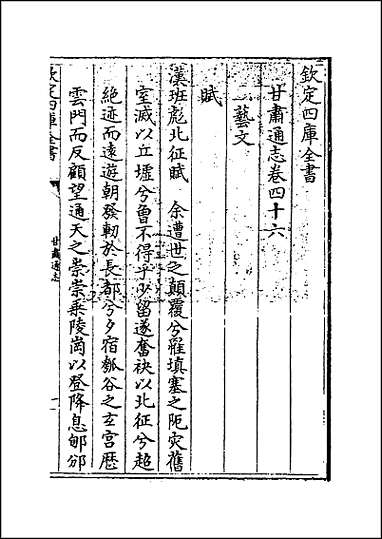 欽定四庫全書
甘肅通志卷四十六
藝文
賦
漢班彪北征賦 余遭世之顛覆兮罹填塞之阨灾舊
室滅以丘墟兮曾不得乎少留遂奮袂以北征兮超
絶迹而遠遊朝發軔於長都兮夕宿瓠谷之玄宫歴
雲門而反顧望通天之崇崇乗陵崗以登降息郇邠
欽定四庫全書
甘肅通志
一